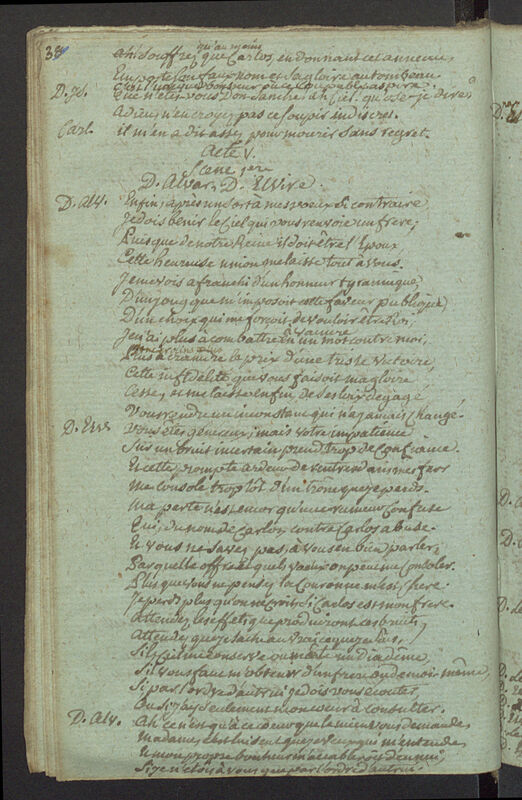 38
qu'au moins
Ah! Souffrez que Carlos, en donnant cet anneau,
Emporte ce faux nom et sa gloire au tombeau
D. Is. Que n'etes-vous Don Sanche, ah Ciel! qu'ose-je dire?
Adieu, n'en croyez pas ce soupir indiscret.
Carl. il m'en a dit assez pour mourir sans regret.
Acte V.
Scene 1ere
D. Alvar, D. Elvire.
D. Alv. Enfin, après un sort à mes voeux si contraire
Je dois bénir le Ciel qui vous renvoie un frere;
Puisque de notre Reine il doit être l'Epoux
Cette heureuse union me laisse tout à vous.
Je me vois afranchi d'un honneur tyrannique,
D'un joug que m'imposoit cette faveur publique,
D'un choix qui me forçoit de vouloir être Roi,
Je n'ai plus à combattre à vaincre un mot contre moi,
Plus à craindre le prix d'une triste victoire,
Cette infidélité que vous faisoit ma gloire
Cesse, et me laisse enfin, de ses loix dégagé
Vous rendre un inconstant qui n'a jamais changé.
D. Elv. Vous êtes généreux, mais votre impatience
Sur un bruit incertain prend trop de confiance.
Et cette prompte ardeur de rentrer dans mes fers
Me console trop tôt d'un trône que je perds.
Ma perte n'est encor qu'une rumeur confuse
Qui, du nom de Carlos, contre Carlos abuse.
Et vous ne savez pas, à vous en bien parler,
Par quelle offre et quels voeux on peut me consoler.
Plus que vous ne pensez la Couronne m'est chere.
Je perds plus qu'on ne croit, si Carlos est mon frere.
Attendez les effets que produiront ces bruits,
Attendez que je sache au vrai ce que je suis,
Si le Ciel me conserve ou m'ôte un diadême,
S'il vous faut m'obtenir d'un frere ou de moi-même,
Si par l'ordre d'autrui je dois vous écouter,
Ou si j'ay seulement mon coeur à consulter.
D. Alv. Ah! ce n'est qu'à ce coeur que le mien vous demande,
Madame, c'est lui seul que je veux qui m'entende,
Et mon propre bonheur m'accableroit d'ennui,
Si je n'étois à vous que par l'ordre d'autrui.